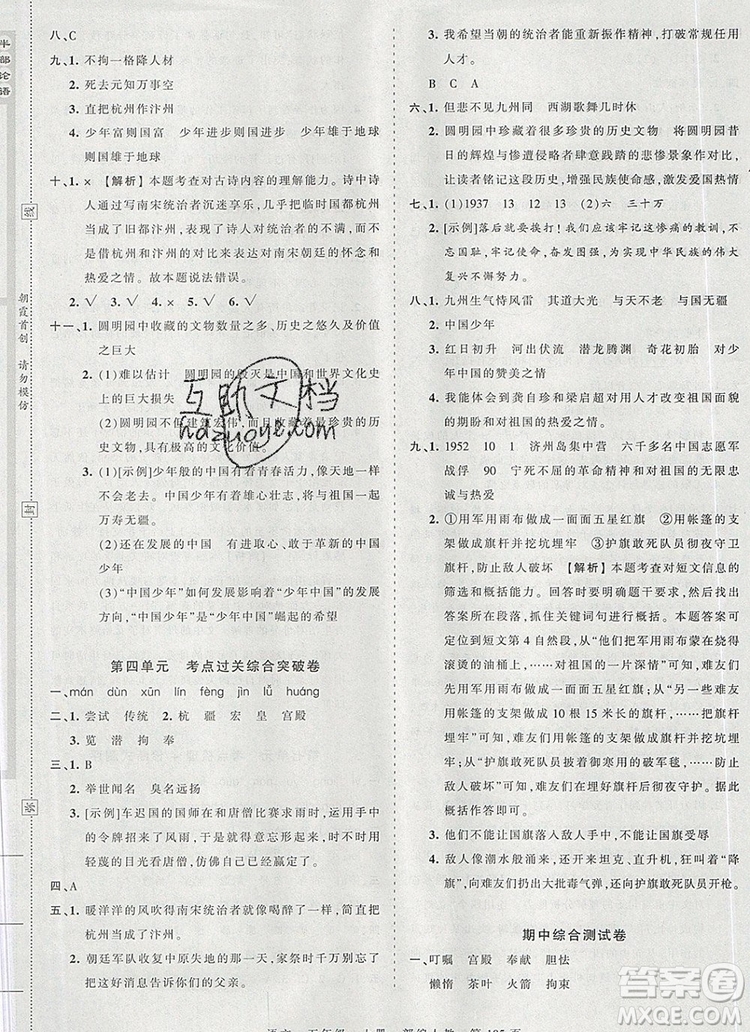 八、C
九、1. 不拘一格降人材
2. 死去元知万事空
3. 直把杭州作汴州
4. 少年富则国富　少年进步则国进步　少年雄于地球
则国雄于地球
十、1. ×　【解析】本题考查对古诗内容的理解能力。诗中诗
人写南宋统治者沉迷享乐，将临时苟安的国都杭州
当成了旧都汴州，表达了作者对统治者的不满，而不
是借杭州和汴州的对比来表达对南宋朝廷的怀念和
热爱之情。故本题说法错误。
2. √　3. √　4. √
十一、1. 圆明园中收藏的文物数量之多、历史之悠久及价值
之巨大
2. (1)难以估计　圆明园的毁灭是中国和世界文化史
上的巨大损失
(2)圆明园不但建筑宏伟，而且收藏着最珍贵的历
史文物，具有极高的文化价值。
3. (1)[示例]少年般的中国有着青春活力，像天地一样
不会衰老。中国少年有着雄心壮志，将与祖国一起
万寿无疆。
(2)正在发展的中国　有进取心、敢于革新的中国
少年
(3)“中国少年”如何发展影响着“少年中国”的发展
方向，“中国少年”是“少年中国”崛起的希望
第四单元　考点过关综合突破卷
一、mán　dùn　xūn　lín　fèng　jìn　lǚ　huáng
二、1. 尝试　传统　2. 杭　疆　宏　皇　宫殿
3. 览　潜　拘　奉
三、1. B
2. 举世闻名　臭名远扬
3. [示例]车迟国的国师在和唐僧比赛求雨时，一挥手中
的令牌招来了风雨，于是便得意忘形，不可一世，用
轻蔑的目光看唐僧，仿佛自己已经赢了一样。
四、A
五、1. 暖洋洋的风吹得南宋统治者就像喝醉了一样，简直把
杭州当成了汴州。
2. 朝廷军队收复中原失地的那一天，你们举行家祭时要
把这好消息告诉你们的父亲。
3. 我希望当朝的统治者能重新振作精神，打破常规任用
人才。
B　C　A
六、1. 但悲不见九州同　西湖歌舞几时休
2. 圆明园中珍藏着很多珍贵的历史文物　圆明园昔日
的辉煌与惨遭侵略者肆意践踏的悲惨进行对比　
让读者铭记屈辱历史，激发人们的爱国热情
七、1. (1)1937　13　12　13　(2)六　三十万
2. [示例]落后就要挨打！我们应该牢记这惨痛的教训，不
忘历史，牢记使命，奋发图强，为实现中华民族的伟大
复兴不懈奋斗。
八、1. 九州生气恃风雷　其道大光　与国无疆
2. 中国少年
3. 红日初升　河出伏流　潜龙腾渊　奇花初胎　对少
年中国的赞美之情
4. 我能体会到龚自珍和梁启超对用人才改变祖国面貌
的期盼和对祖国的热爱之情。
九、1. 1952　10　1　济州岛集中营　六千多名中国志愿军
战俘　90　宁死不屈的革命精神和对祖国的无限忠
诚与热爱
2. ①用军用雨布做成一面面五星红旗　②用帐篷的支
架做成旗杆，并挖坑埋牢　③护旗敢死队员彻夜守卫
旗杆，防止敌人破坏　【解析】本题考查对短文信息的
筛选和概括能力。要明确题干要求，找出
答案所在的段落，抓住关键词句进行概括。本题答案可
定位到短文第 4 自然段，从“他们，用雨布蒙上了
滚烫的油油，对祖国的一片深情”可以概括出，难友们
用军用雨布做成一面面五星红旗；从“难友们又连夜
用帐篷的支架做成了一根根旗杆，挖坑埋牢”可以概
括出，难友们用帐篷的支架做成旗杆，并挖坑埋牢；
从“护旗敢死队员们裹着毛毯，彻夜守卫着旗杆，防
止敌人破坏”可以概括出，护旗敢死队员们彻夜守卫
着旗杆，防止敌人破坏。由此可从这三个方面进行
概括。
3. 他们不能让国旗落入敌人手中，不能让国旗受辱
4. 敌人像潮水般涌来，出动坦克、直升机，还拼命扫射
旗杆，释放大批毒气弹，并向护旗敢死队员开枪。
期中综合测试卷
一、叮嘱　宫殿　奉献　胆怯
懒惰　茶叶　火箭　拘束
半部论语
朝霞首创　请勿模仿
线
封
互助文档
hdzuoye.com
答案圈
MXQE.COM